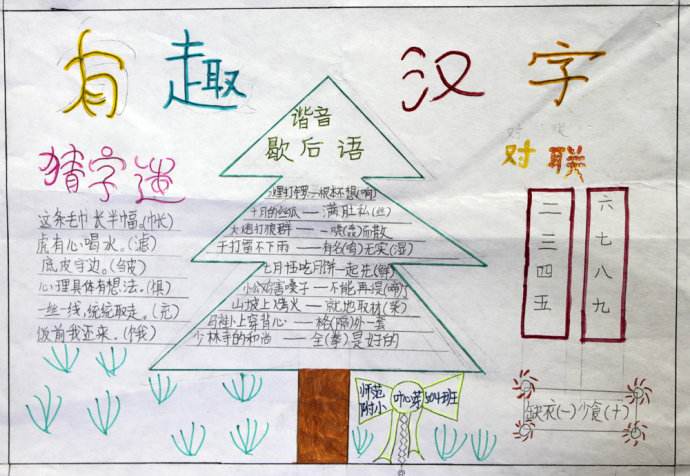 有趣汉字
谐音
歇后语
猜字迷
这条毛巾长半幅。(帐)
虎有心喝水。(滤)
底皮守边。(皱)
心里具体有想法。(惧)
一丝一线,统统取走。(充)
饭前我还来。(饿)
十月的丝瓜——满肚私(丝)
大炮打狼群——一哄(轰)而散
干打雷不下雨——有名(鸣)无实(湿)
七月怪吃月饼一起先(鲜)
小公鸡害嗓子——不能再提(啼)了
山坡上烧火——就地取材(柴)
母褂上穿背心——格(隔)外一套
少林寺的和尚——全(拳)是好的
对联
二三四五
六七八九
缺衣(一)少食(十)
师范
附小
叶心芽
504班